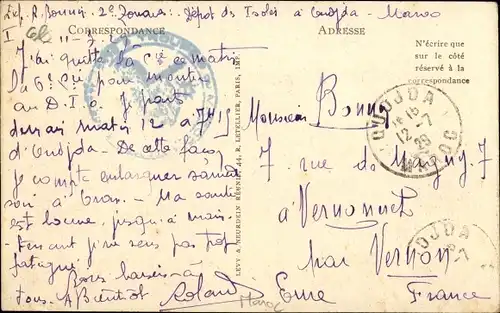 Exp. R. Bonnin. 2e Zouaves. Dépôt des Isolés à Oudjda - Maroc
CORRESPONDANCE
ADRESSE
N'écrire que
sur le côté
réservé à la
correspondance
J'ai quitté la Cie ce matin
la 6e Cie pour monter
au D.I.O. Je pars
demain matin 12 à 7h15
d'Oudjda. De cette façon
je compte embarquer samedi
soir à Oran - Ma santé
est bonne, jusqu'à
présent je ne suis pas trop
fatigué.
Bons baisers à
tous. A Bientôt Roland
Maroc
LEVY & NEURDEIN RÉUNIS, 44, R. LETELLIER, PARIS, IMP.
Monsieur Bonnin
7. rue de 7
à Vernonnet
par Vernon
Eure France
OUDJDA
12-7
MAROC
OUDJDA